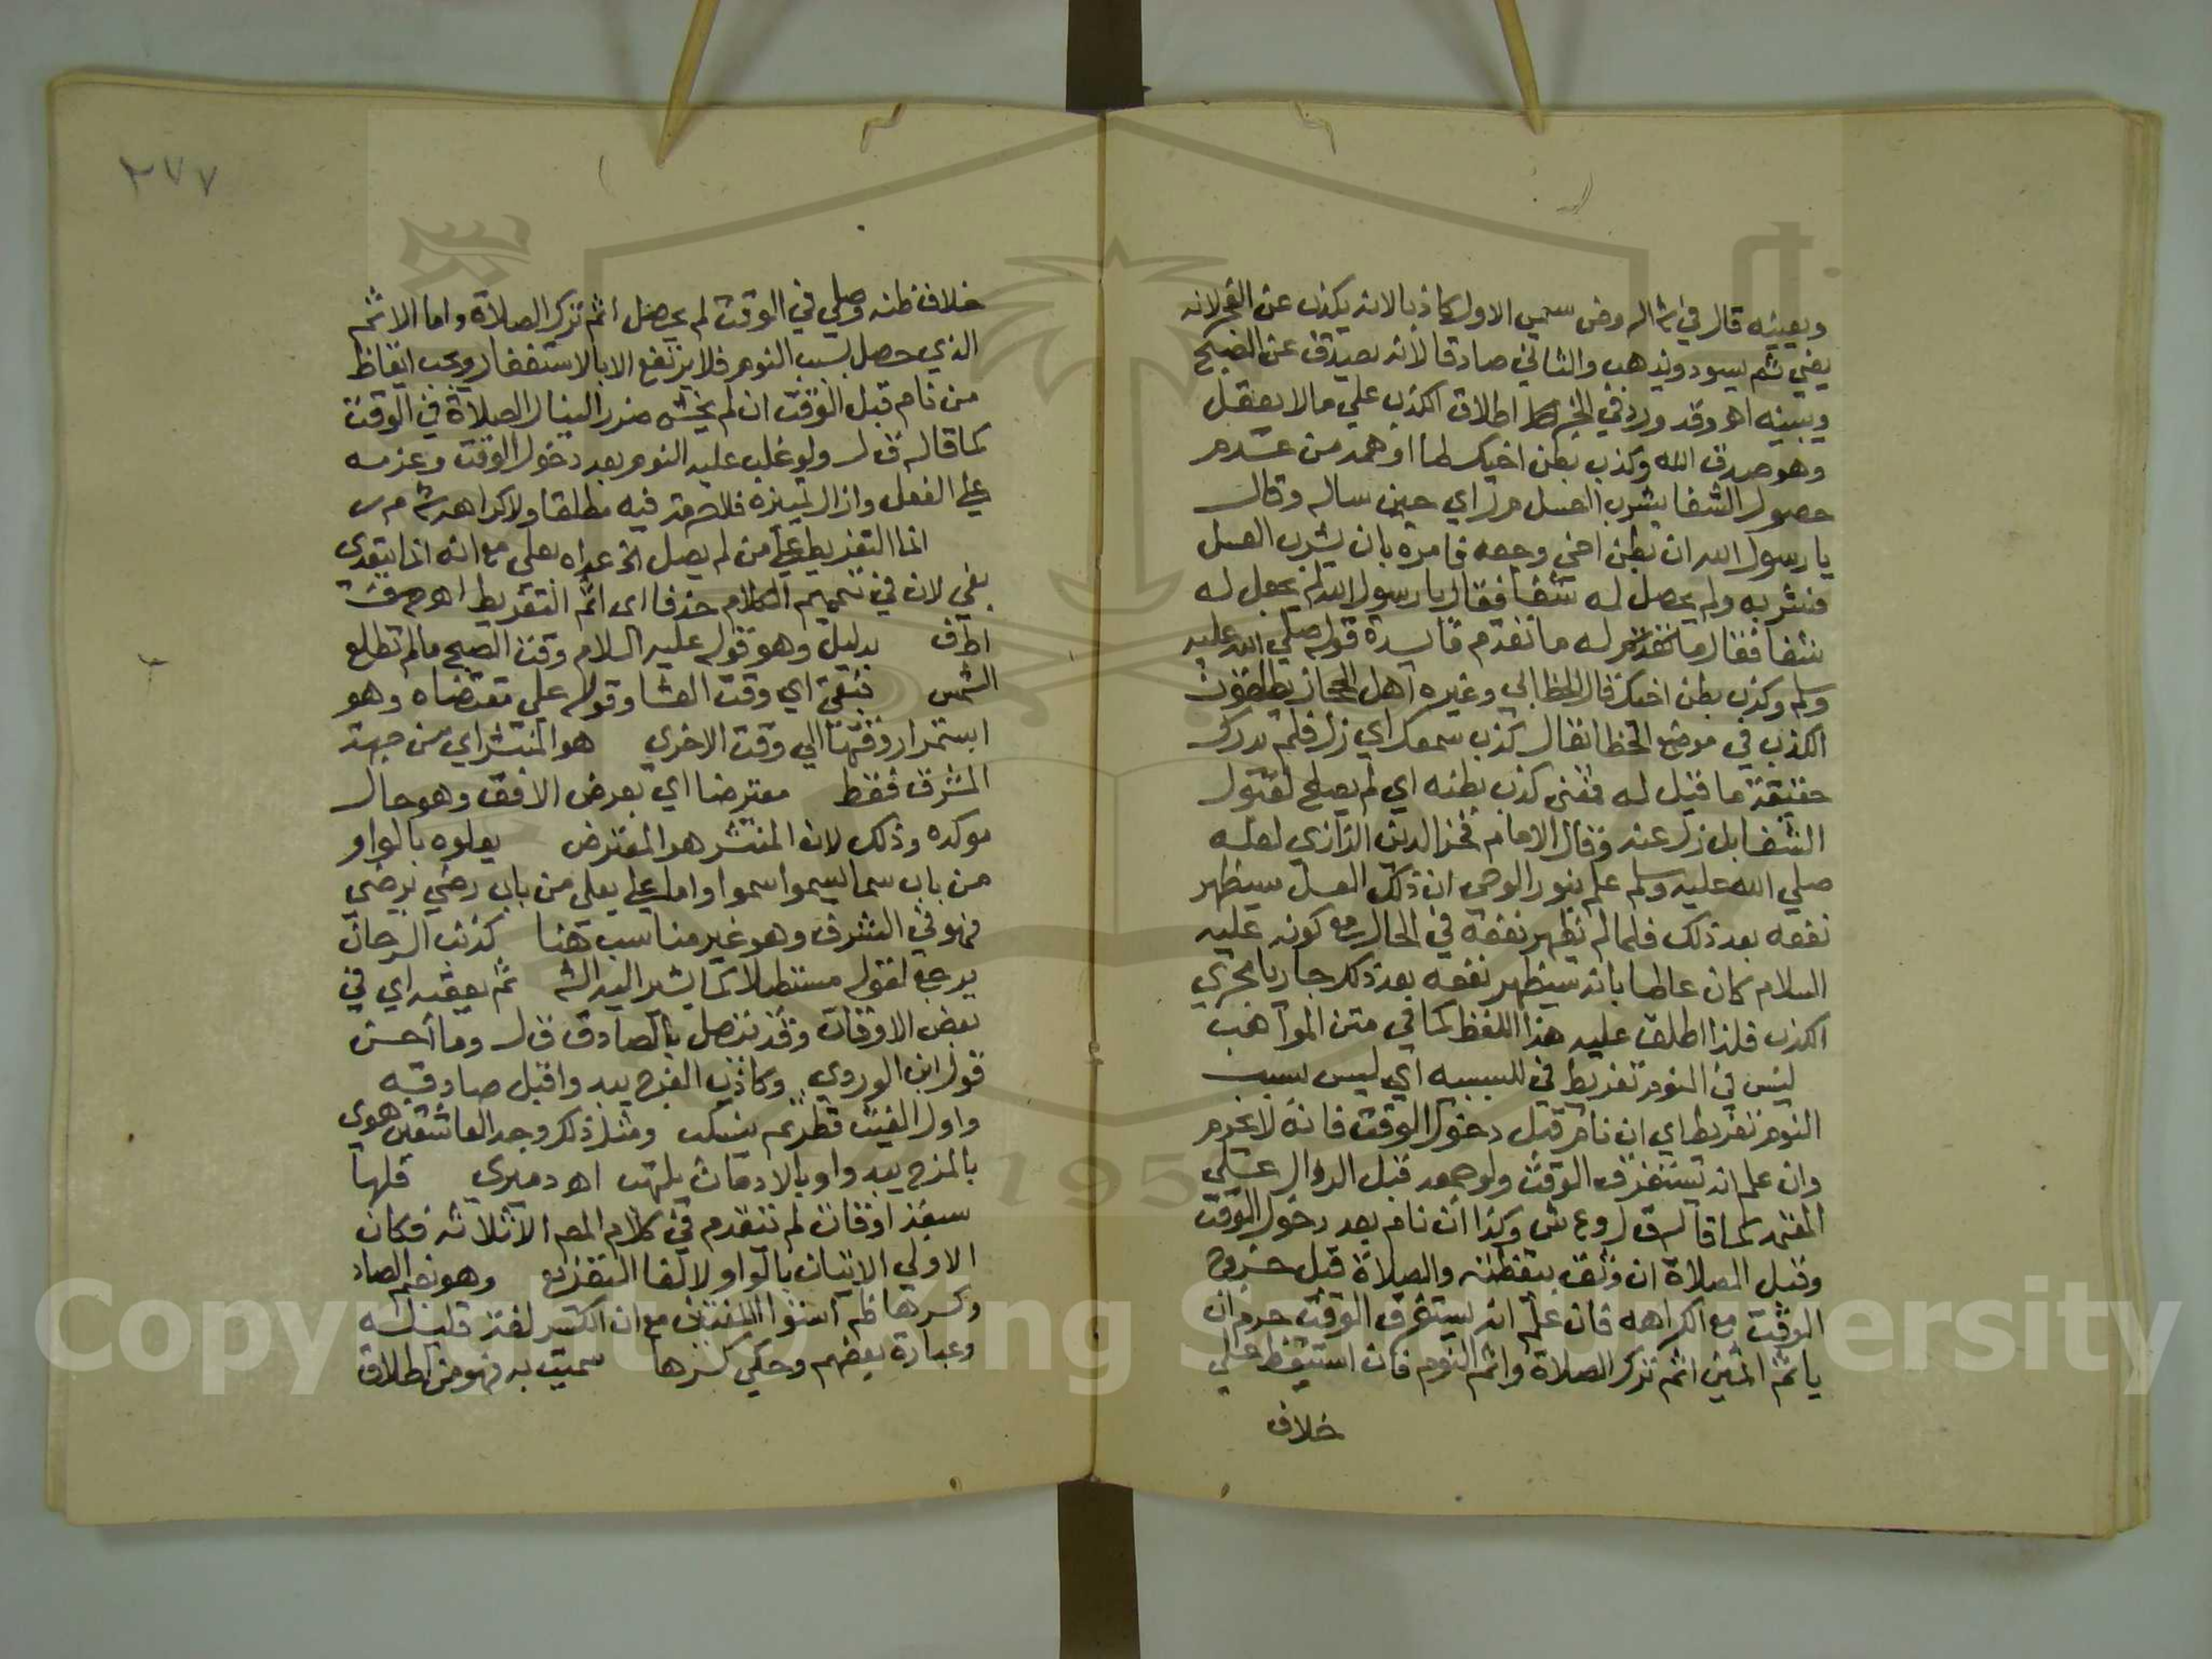 ويبينه قال في شرح الروض سمي الاول كاذبا لانه يكذب عن الفجر لانه
يضي ثم يسود ويذهب والثاني صادقا لانه يصدق عن الصبح
ويبينه اهـ وقد ورد في الخبر اطلاق الكذب علي ما لا يعقل
وهو صدق الله وكذب بطن اخيك لما اوهمه من عدم
حصول الشفا بشرب العسل مرر اي حين ساله وقال
يا رسول الله ان بطن اخي وجعه فامره بان يشرب العسل
فشربه ولم يحصل له شفا فقال يا رسول الله لم يحصل له
شفا فقال ما تقدم له ما تقدم فايدة قوله صلي الله عليه
وسلم وكذب بطن اخيك قال الخطابي وغيره اهل الحجاز يطلقون
الكذب في موضع الخطا يقال كذب سمعك اي زل فلم يدرك
حقيقة ما قيل له فمعني كذب بطنه اي لم يصلح لقبول
الشفا بل زل عنه وقال الامام فخر الدين الرازي لعله
صلي الله عليه وسلم علم بنور الوحي ان ذلك العسل سيظهر
نفعه بعد ذلك فلما لم يظهر نفعه في الحال مع كونه عليه
السلام كان عالما بانه سيظهر نفعه بعد ذلك جاريا مجري
الكذب فلذا اطلق عليه هذا اللفظ كما في متن المواهب
ليس في النوم تفريط في للسببيه اي ليس بسبب
النوم تفريط اي ان نام قبل دخول الوقت فانه لا يحرم
وان علم انه يستغرق الوقت ولو جمعه قبل الزوال علي
المعتمد كما قاله ق ل وع ش وكذا ان نام بعد دخول الوقت
وقبل الصلاة ان وثق بيقظته والصلاة قبل خروج
الوقت مع الكراهه فان علم انه يستغرق الوقت حرم ان
ياثم اثمين اثم ترك الصلاة واثم النوم فان استيقظ علي
خلاف
٢٧٧
خلاف ظنه وصلي في الوقت لم يحصل اثم ترك الصلاة واما الاثم
الذي حصل بسبب النوم فلا يرتفع الا بالاستغفار ويجب ايقاظ
من نام قبل الوقت ان لم يخش ضررا لينال الصلاة في الوقت
كما قاله ق ل ولو غلب عليه النوم بعد دخول الوقت وعزمه
علي الفعل وازال تمييزه فلا حرمة فيه مطلقا ولا كراهة ش م ر
انما التفريط علي من لم يصل الخ عداه بعلي مع انه انما يتعدي
بفي لان في الكلام حذفا اي اثم التفريط اهـ
اط ف بدليل وهو قوله عليه السلام وقت الصبح ما لم تطلع
الشمس فبقي اي وقت العشا وقوله علي مقتضاه وهو
استمرار وقتها الي وقت الاخري هو المنتشر اي من جهة
المشرق فقط معترضا اي بعرض الافق وهو حال
موكده وذلك لان المنتشر هو المعترض يعلوه بالواو
من باب سما يسموا سموا واما علي يعلي من باب رضي يرضي
فهو في الشرف وهو غير مناسب هنا كذنب السرحان
يرجع لقوله مستطيلا كما يشير اليه الش ثم يعقبه اي في
بعض الاوقات وقد يتصل بالصادق ق ل وما احسن
قول ابن الوردي وكاذب الفجر يبدوا قبل صادقه
واول الغيث قطر ثم ينسكب ومثل ذلك وجد العاشقين هوي
بالمزح يبدوا وبالادمان يلتهب اهـ دميري فلها
سبعة اوقات لم يتقدم في كلام المص الا ثلاثة فكان
الاولي الاتيان بالواو لا بفا التفريع وهو بضم الصاد
وكسرها ظم استوا اللغتين مع ان الكسر لغة قليلة
وعبارة بعضهم وحكي كسرها سميت به فهو من اطلاق
Copyright © King Saud University